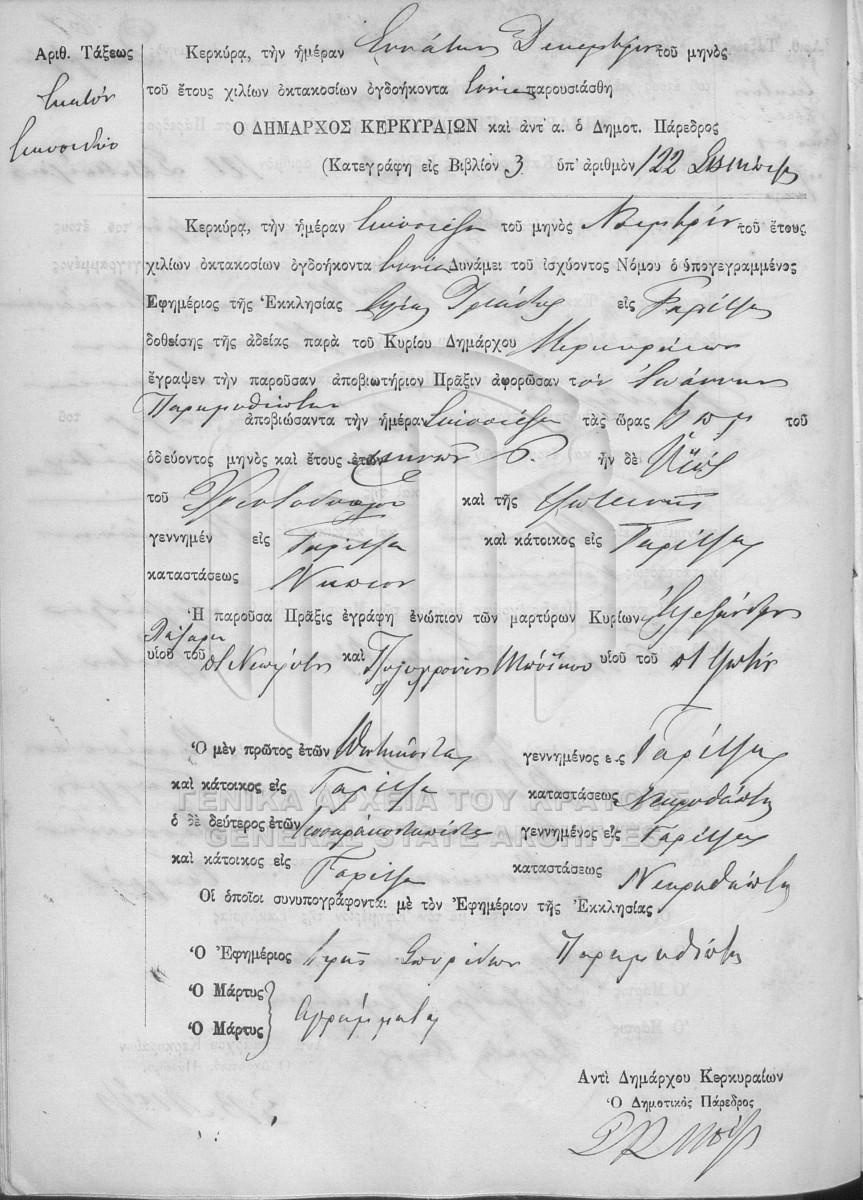 Ἀριθ. Τάξεως
Ἑκατὸν
Εἰκοσιδύο
Κερκύρα, τὴν ἡμέραν Ἐννάτην Δεκεμβρίου τοῦ μηνὸς
τοῦ ἔτους χιλίων ὀκτακοσίων ὀγδοήκοντα ἐννέα παρουσιάσθη
Ὁ ΔΗΜΑΡΧΟΣ ΚΕΡΚΥΡΑΙΩΝ καὶ ἀντ' α. ὁ Δημοτ. Πάρεδρος
(Κατεγράφη εἰς Βιβλίον 3 ὑπ' ἀριθμὸν 122
Κερκύρα, τὴν ἡμέραν Εἰκοστὴν τοῦ μηνὸς Νοεμβρίου τοῦ ἔτους
χιλίων ὀκτακοσίων ὀγδοήκοντα ἐννέα Δυνάμει τοῦ ἰσχύοντος Νόμου ὁ ὑπογεγραμμένος
Ἐφημέριος τῆς Ἐκκλησίας Ἁγίας Τριάδος εἰς Γαρίτσα
δοθείσης τῆς ἀδείας παρὰ τοῦ Κυρίου Δημάρχου Κερκυραίων
ἔγραψεν τὴν παροῦσαν ἀποβιωτήριον Πρᾶξιν ἀφορῶσαν τὸν Ἰωάννην
Παραμυθιώτην ἀποβιώσαντα τὴν ἡμέραν Εἰκοστὴν τὰς ὥρας π μ τοῦ
ὁδεύοντος μηνὸς καὶ ἔτους ἐτῶν μηνῶν ἦν δὲ Υἱὸς
τοῦ Χριστοδούλου καὶ τῆς Φωτεινῆς
γεννημέν εἰς Γαρίτσα καὶ κάτοικος εἰς Γαρίτσα
καταστάσεως Νήπιον
Ἡ παροῦσα Πρᾶξις ἐγράφη ἐνώπιον τῶν μαρτύρων Κυρίων Ἀλεξάνδρου
υἱοῦ τοῦ καὶ Πολυχρόνη υἱοῦ τοῦ Φωτίου
Ὁ μὲν πρῶτος ἐτῶν Πεντήκοντα γεννημένος ε.ς Γαρίτσα
καὶ κάτοικος εἰς Γαρίτσα καταστάσεως Νεκροθάπτης
ὁ δὲ δεύτερος ἐτῶν τεσσαρακονταπέντε γεννημένος εἰς Γαρίτσα
καὶ κάτοικος εἰς Γαρίτσα καταστάσεως Νεκροθάπτης
Οἱ ὁποῖοι συνυπογράφονται μὲ τὸν Ἐφημέριον τῆς Ἐκκλησίας
Ὁ Ἐφημέριος Ἱερεὺς Σπυρίδων Παραμυθιώτης
Ὁ Μάρτυς
Ὁ Μάρτυς
Ἀγράμματοι
Ἀντὶ Δημάρχου Κερκυραίων
Ὁ Δημοτικὸς Πάρεδρος
ΓΕΝΙΚΑ ΑΡΧΕΙΑ ΤΟΥ ΚΡΑΤΟΥΣ
GENERAL STATE ARCHIVES